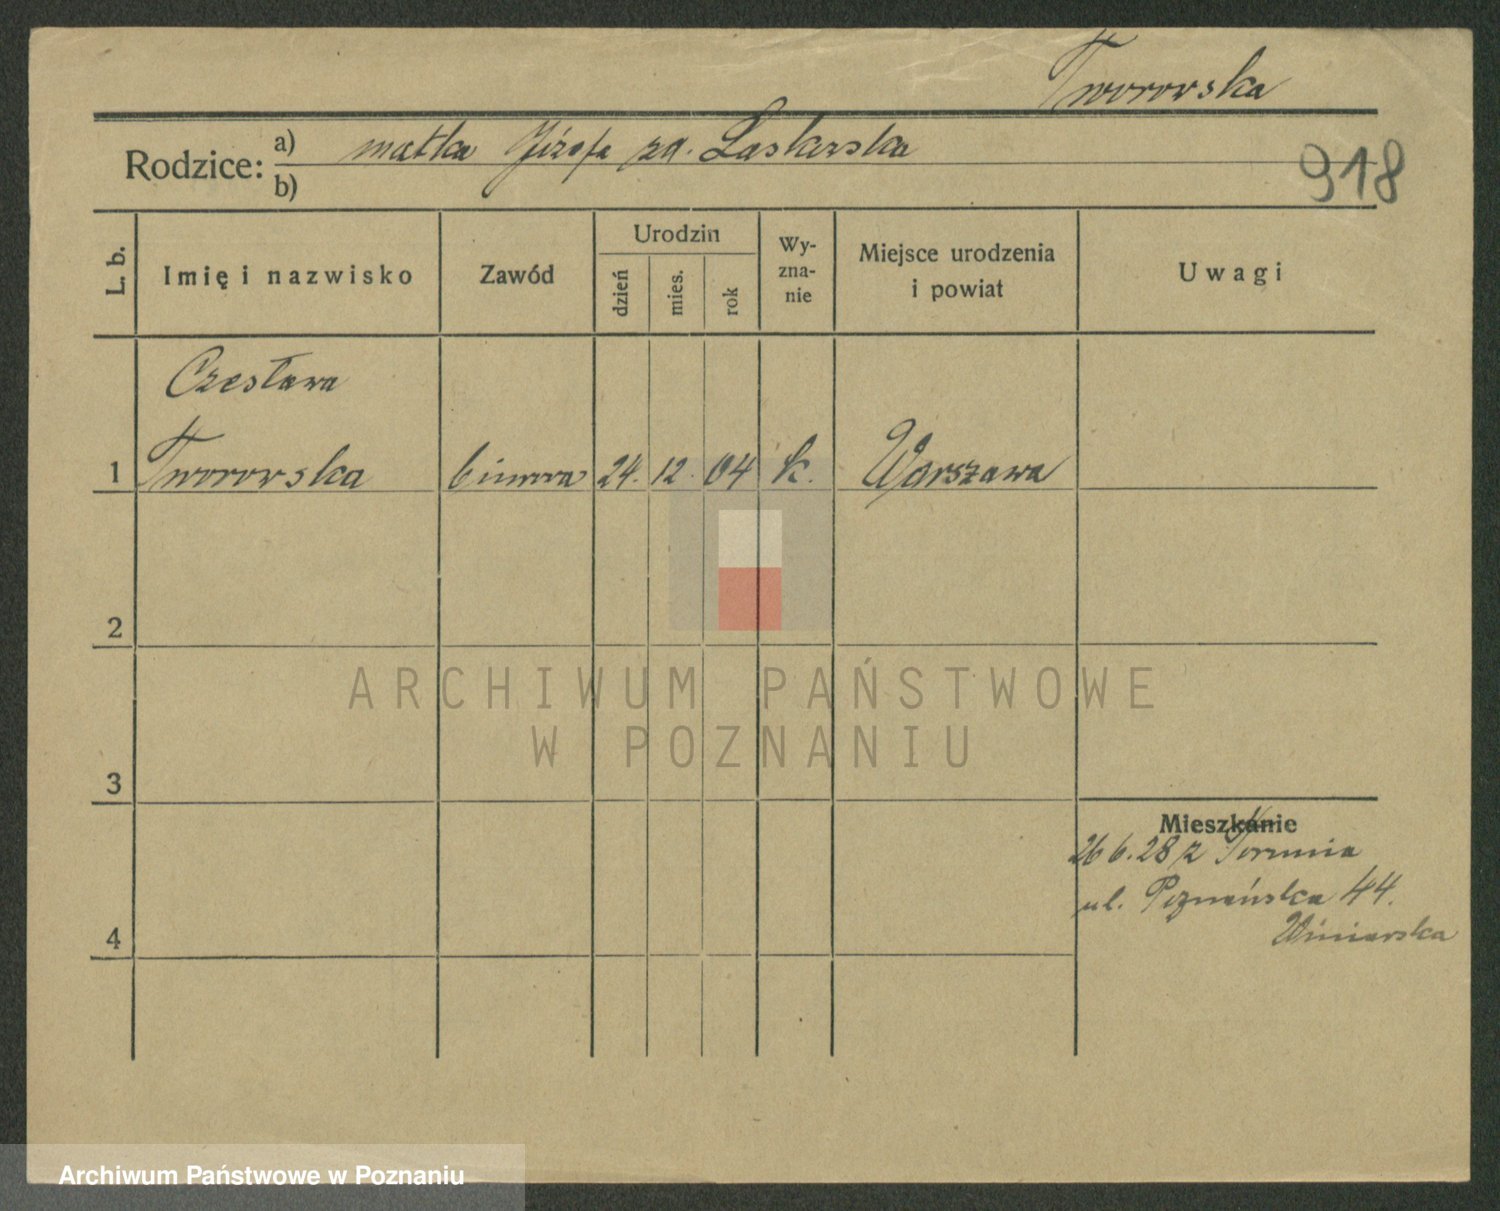 Tworowska
Rodzice: a) matka Józefa zd. Laskarska
b)
918
L. b. Imię i nazwisko Zawód Urodzin dzień mies. rok Wy-zna-nie Miejsce urodzenia i powiat Uwagi
Czesława
1 Tworowska biurowa 24. 12. 04 k. Warszawa
2
3
Mieszkanie
26 6. 28 z Torunia
ul. Poznańska 44.
Winiarska
4
ARCHIWUM PAŃSTWOWE
W POZNANIU
Archiwum Państwowe w Poznaniu